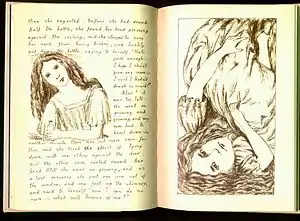 than she expected: before she had drunk
half the bottle, she found her head pressing
against the ceiling, and she stooped to save
her neck from being broken, and hastily
put down the bottle, saying to herself "that's
quite enough—
I hope I shan't
grow any more—
I wish I hadn't
drunk so much!"
Alas! it
was too late:
she went
on growing
and growing,
and very
soon had to
kneel down: in
another minute there was not room even for
this, and she tried the effect of lying
down, with one elbow against the door,
and the other arm curled round her
head. Still she went on growing, and as
a last resource she put one arm out of
the window, and one foot up the chimney,
and said to herself "now I can do no
more— what will become of me?"